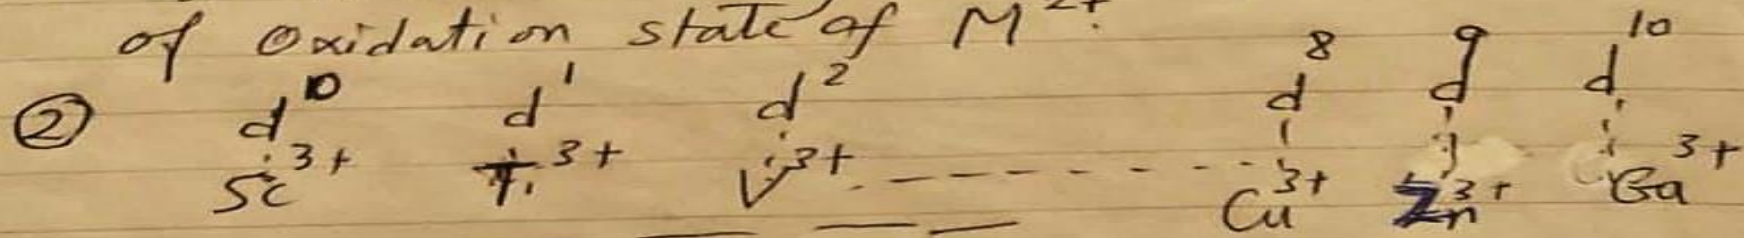 of oxidation state of M²⁺.
② d⁰ d¹ d² d⁸ d⁹ d¹⁰
Sc³⁺ Ti³⁺ V³⁺ - - - - - - - Cu³⁺ Zn³⁺ Ga³⁺